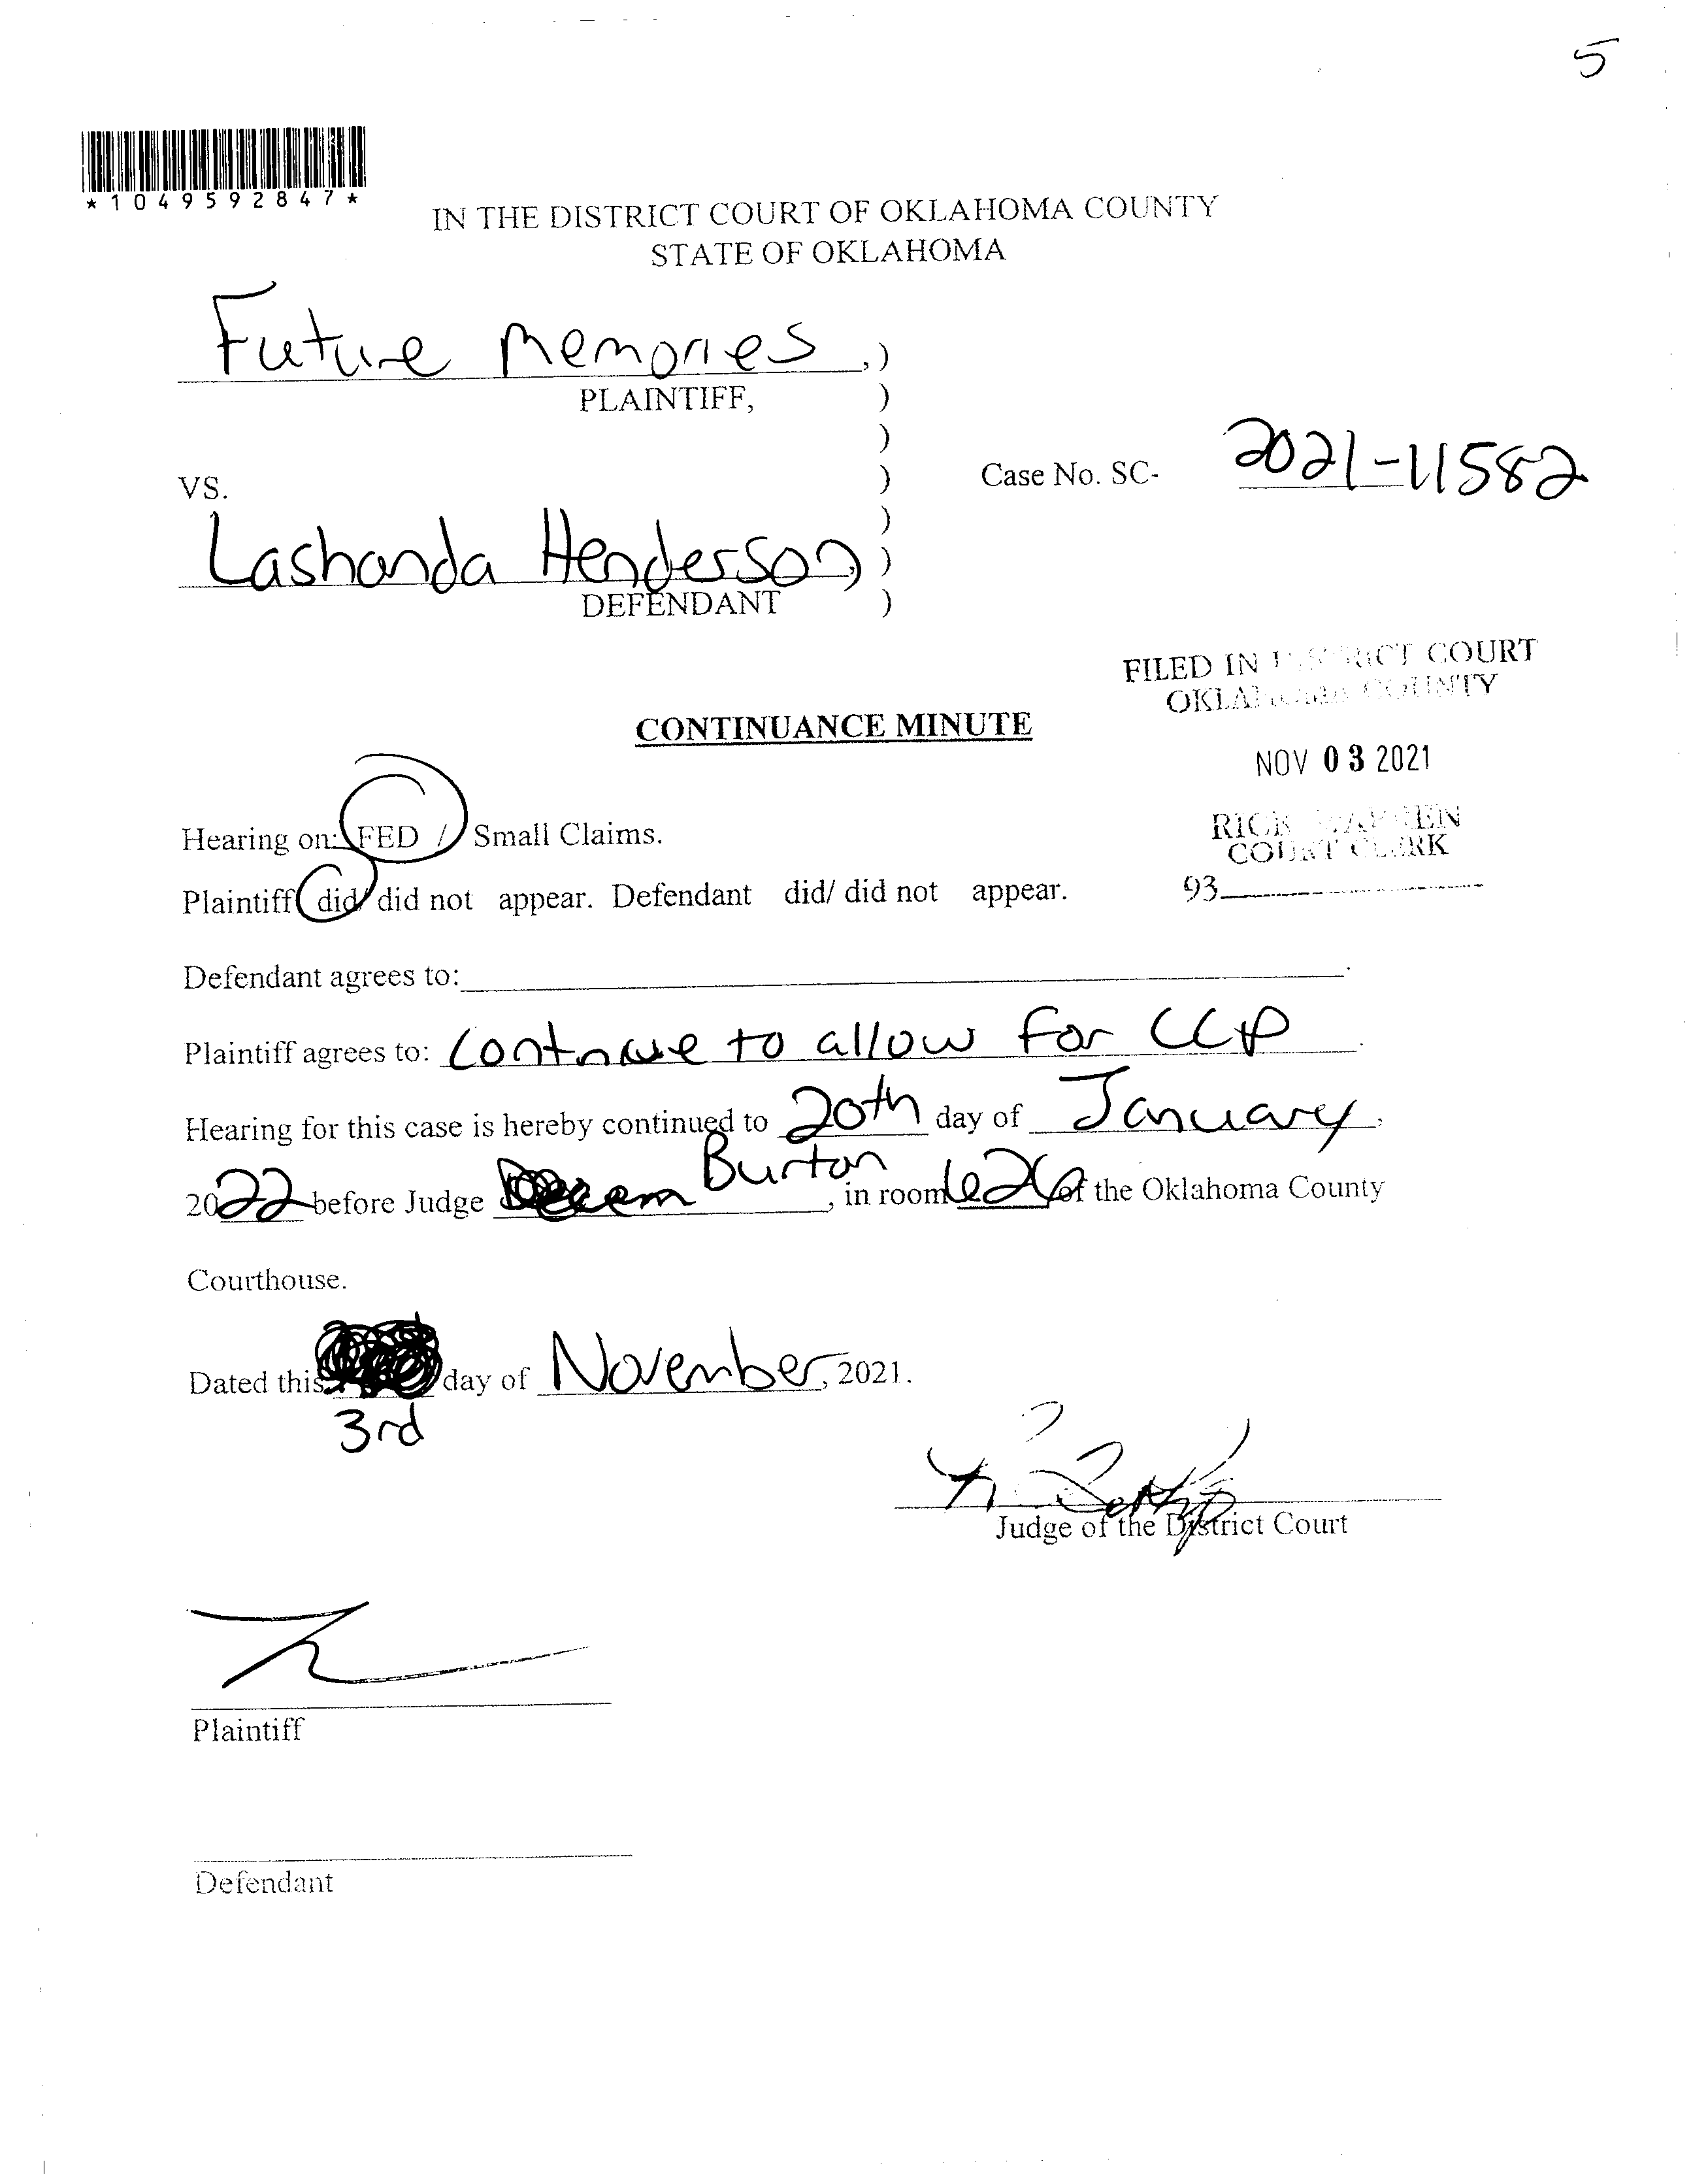 5
*1049592847*
IN THE DISTRICT COURT OF OKLAHOMA COUNTY
STATE OF OKLAHOMA
Future Memories,)
PLAINTIFF, )
)
VS. ) Case No. SC- 2021-11582
)
Lashanda Henderson, )
DEFENDANT )
FILED IN DISTRICT COURT
OKLAHOMA COUNTY
CONTINUANCE MINUTE
NOV 03 2021
Hearing on: FED / Small Claims.
RICK WARREN
COURT CLERK
Plaintiff did/ did not appear. Defendant did/ did not appear.
93
Defendant agrees to: .
Plaintiff agrees to: Continue to allow for CCP.
Hearing for this case is hereby continued to 20th day of January,
2022 before Judge Burton, in room 626 of the Oklahoma County
Courthouse.
Dated this 3rd day of November, 2021.
Judge of the District Court
Plaintiff
Defendant